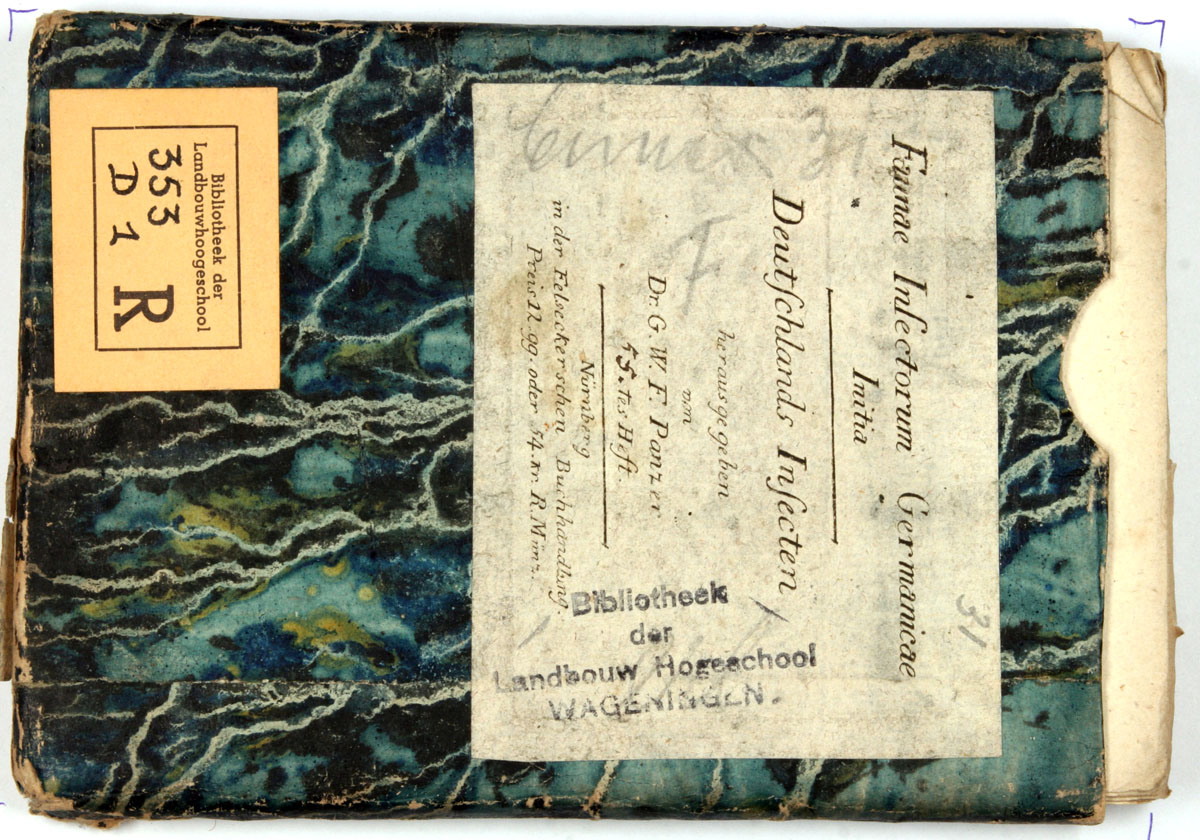 Faunae Insectorum Germanicae
Initia
Deutſchlands Inſecten
herausgegeben
von
Dr. G. W. F. Panzer
55. tes Heft.
Nürnberg
in der Felseckerschen Buchhandlung
Preis 12. gg. oder 54. kr. R. Münz.
31
F
Bibliotheek
der
Landbouw Hogeschool
WAGENINGEN.
Bibliotheek der
Landbouwhoogeschool
353
D 1 R